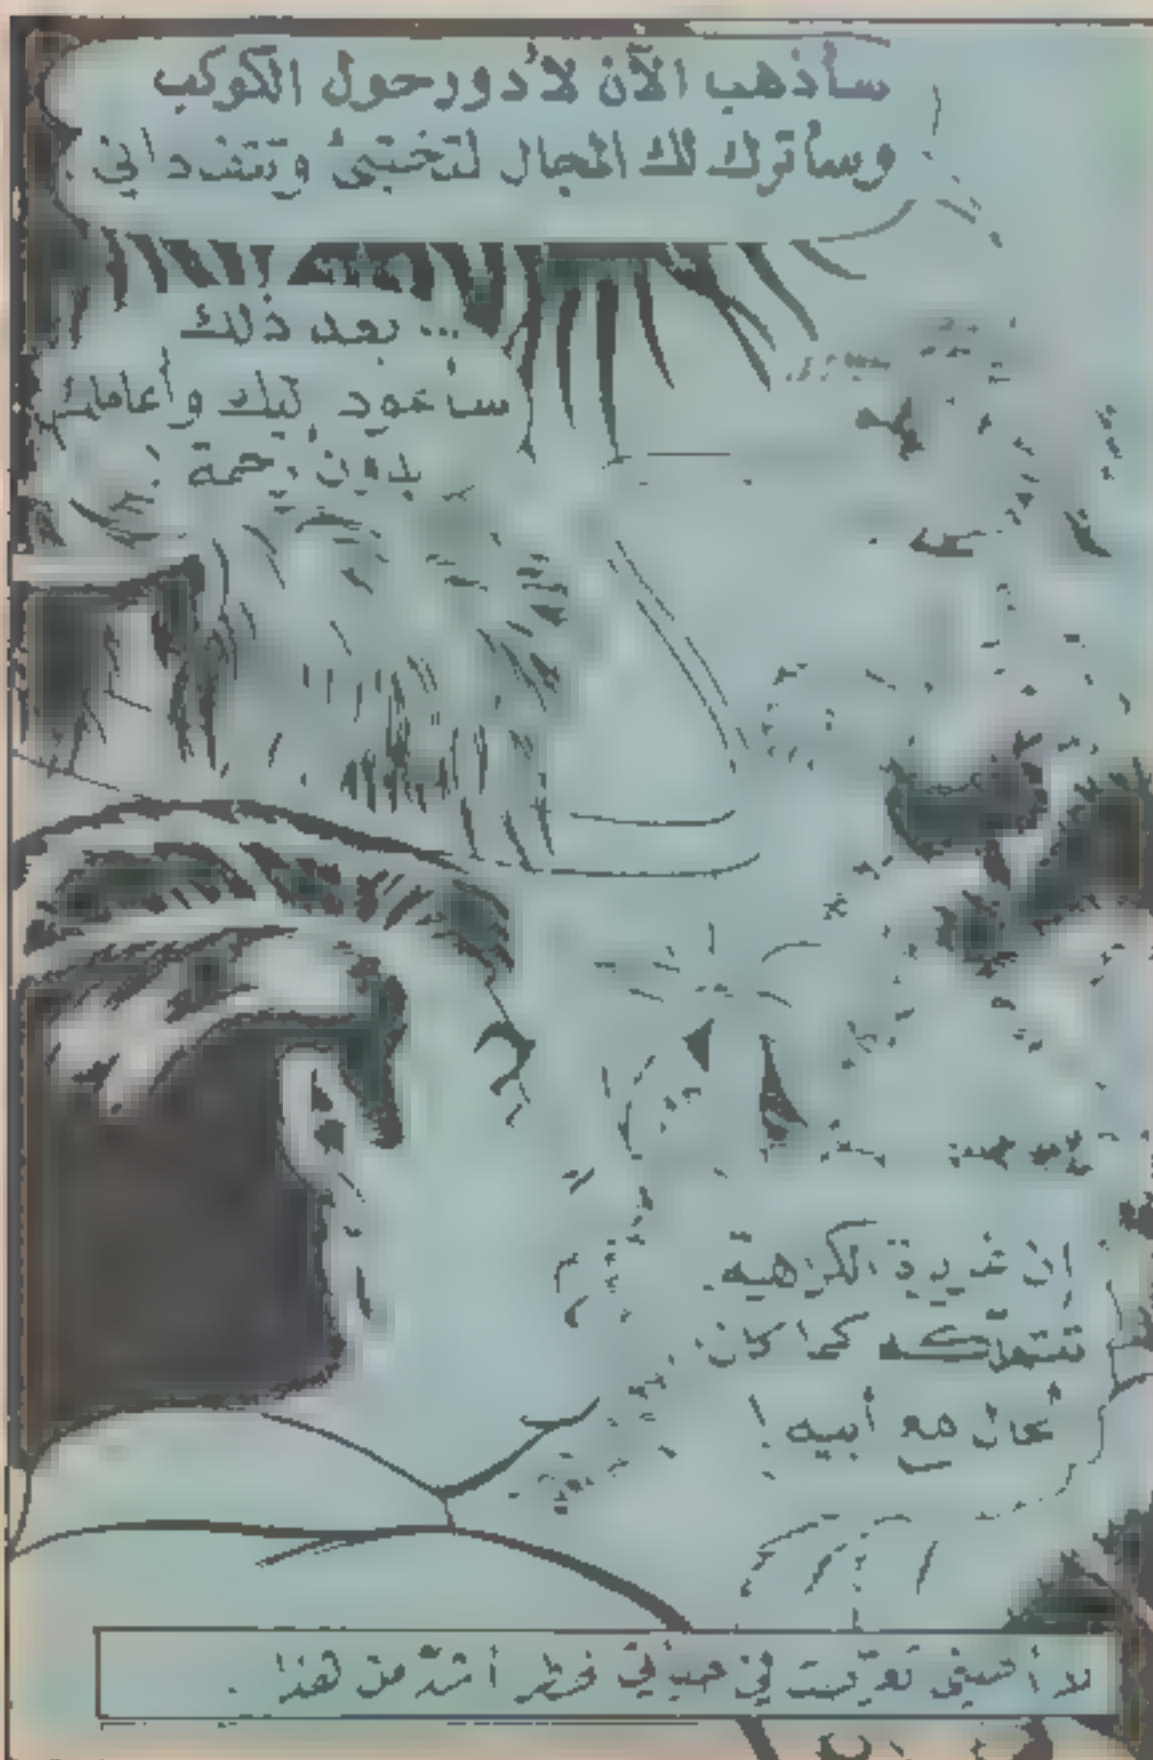 سأذهب الآن لأدور حول الكوكب
وسأترك لك المجال لتختبئ وتتفاداني
... بعد ذلك
سأعود إليك وأعاملك
بدون رحمة !
إن غريزة الكراهية
تتملكه كما كان
الحال مع أبيه !
لا أحسبني تعرّضت في حياتي لخطر أشدّ من هذا .